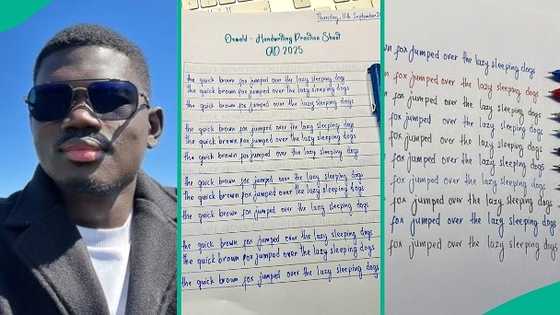 Thursday, 11th September
Oswald - Handwriting Practice Sheet
2025
the quick brown fox jumped over the lazy sleeping dog
the quick brown fox jumped over the lazy sleeping dogs
the quick brown fox jumped over the lazy sleeping dogs
the quick brown fox jumped over the lazy sleeping dogs
the quick brown fox jumped over the lazy sleeping dogs
the quick brown fox jumped over the lazy sleeping dogs
the quick brown fox jumped over the lazy sleeping dogs
the quick brown fox jumped over the lazy sleeping dogs
the quick brown fox jumped over the lazy sleeping dogs
the quick brown fox jumped over the lazy sleeping dogs
the quick brown fox jumped over the lazy sleeping dogs
the quick brown fox jumped over the lazy sleeping dogs
fox jumped over the lazy sleeping dogs
fox jumped over the lazy sleeping dogs
fox jumped over the lazy sleeping dogs
fox jumped over the lazy sleeping dogs
fox jumped over the lazy sleeping dogs
fox jumped over the lazy sleeping dogs
fox jumped over the lazy sleeping dogs
fox jumped over the lazy sleeping dogs
fox jumped over the lazy sleeping dogs
fox jumped over the lazy sleeping dogs